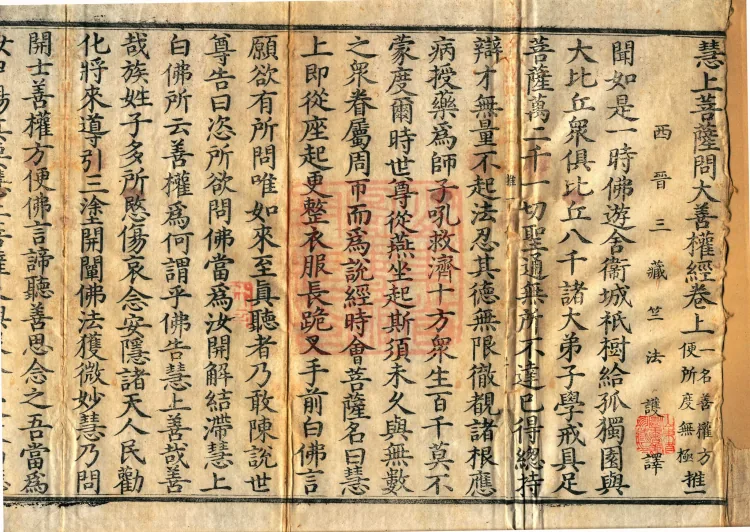 慧上菩薩問大善權經卷上 一名善權方便所度無極 推一
西晉三藏竺法護譯
聞如是一時佛遊舍衞城祇樹給孤獨園與
大比丘衆俱比丘八千諸大弟子學戒具足
菩薩萬二千一切聖通無所不達已得總持
辯才無量不起法忍其德無限徹覩諸根應
病授藥爲師子吼救濟十方衆生百千莫不
蒙度爾時世尊從燕坐起斯須未久與無數
之衆眷屬周帀而爲說經時會菩薩名曰慧
上即從座起更整衣服長跪叉手前白佛言
願欲有所問唯如來至眞聽者乃敢陳說世
尊告曰恣所欲問佛當爲汝開解結滯慧上
白佛所云善權爲何謂乎佛告慧上善哉善
哉族姓子多所愍傷哀念安隱諸天人民勸
化將來導引三塗開闡佛法獲微妙慧乃問
開士善權方便佛言諦聽善思念之吾當爲